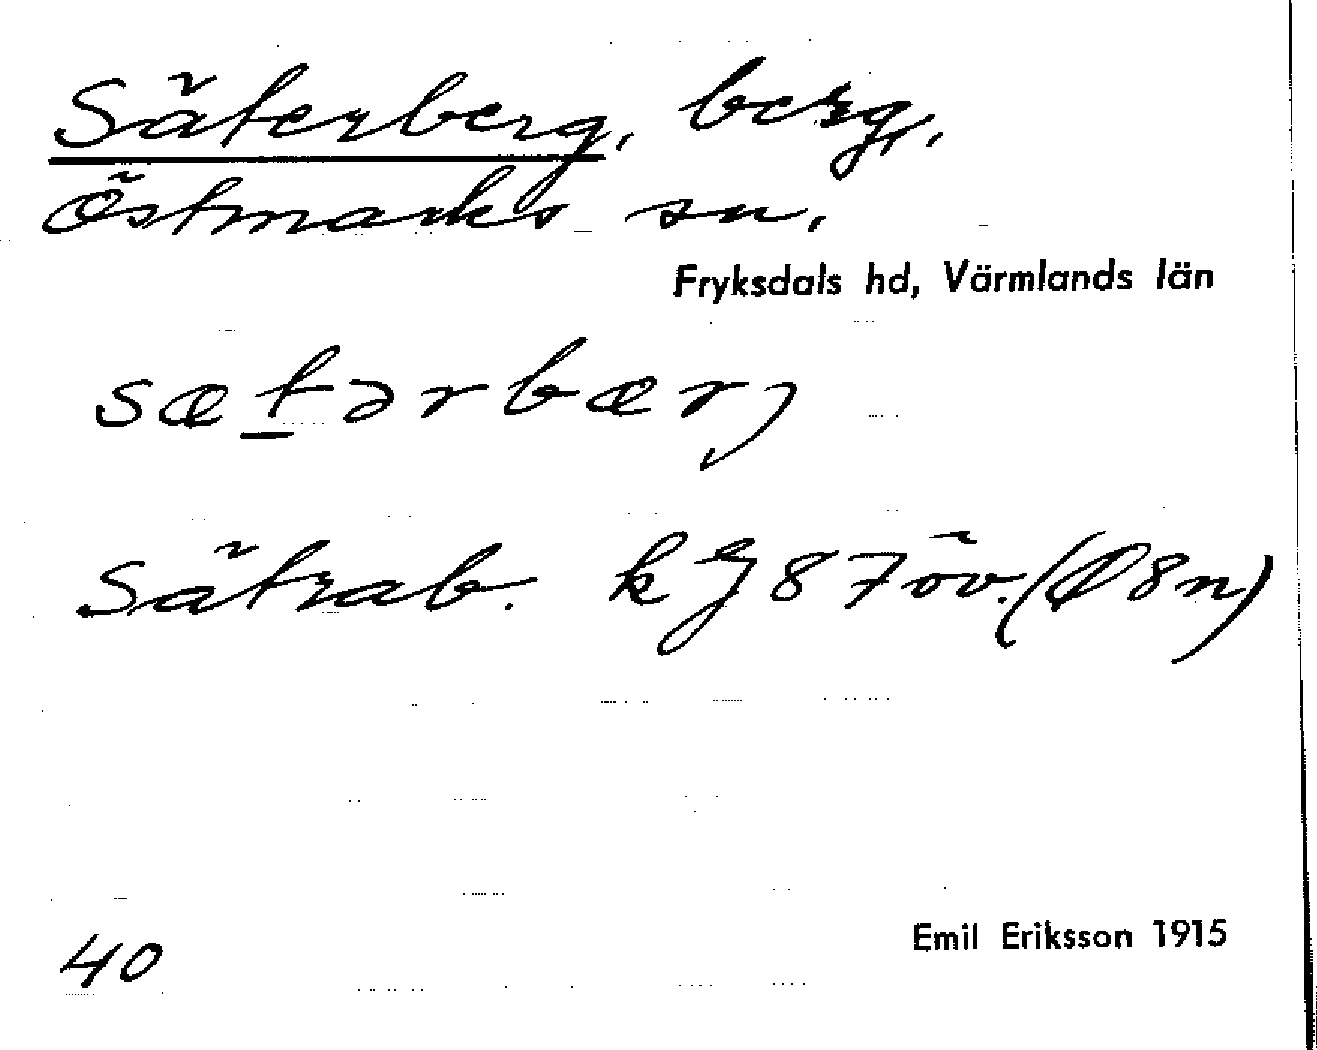 Säterberg, berg,
Östmarks sn,
Fryksdals hd, Värmlands län
sætərbærj
Sätrab. k 87 öv. (Ø 8n)
40
Emil Eriksson 1915